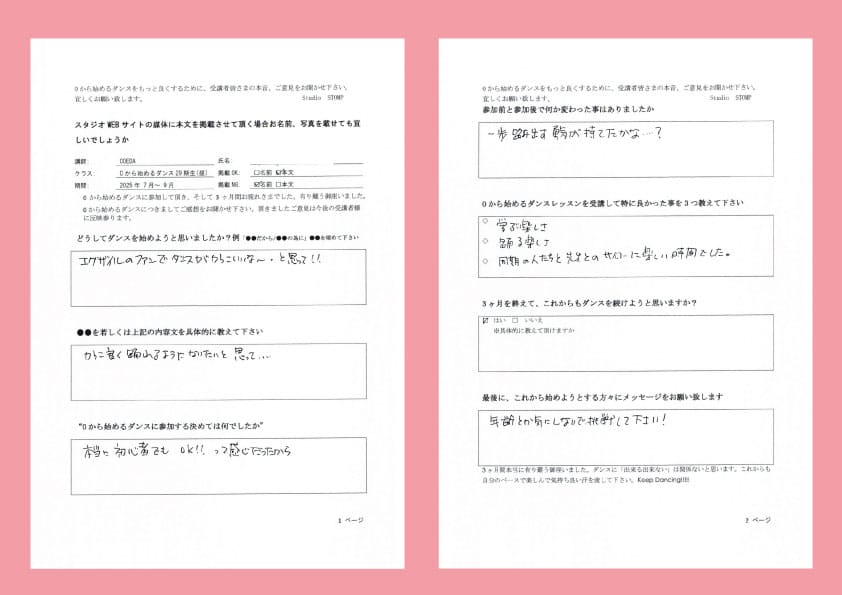 0から始めるダンスをもっと良くするために、受講者皆さまの本音、ご意見をお聞かせ下さい。
宜しくお願い致します。 Studio STOMP
スタジオWEBサイトの媒体に本文を掲載させて頂く場合お名前、写真を載せても宜
しいでしょうか
講師: COEDA 氏名:
クラス: 0から始めるダンス29期生(昼) 掲載OK: ☐名前 ☑本文
期間: 2025年 7月〜 9月 掲載NG: ☑名前 ☐本文
0から始めるダンスに参加して頂き、そして3ヶ月間お疲れさまでした。有り難う御座いました。
0から始めるダンスにつきましてご感想をお聞かせ下さい。頂きましたご意見は今後の受講者様
に反映参ります。
どうしてダンスを始めようと思いましたか?例「●●だから/●●の為に」●●を埋めて下さい
エグザイルのファンで ダンスがかっこいいな〜・と思って!!
●●を若しくは上記の内容文を具体的に教えて下さい
かっこ良く踊れるようになりたいと思って...
"0から始めるダンスに参加する決めては何でしたか"
本当に初心者でも OK!! って感じだったから
1 ページ
0から始めるダンスをもっと良くするために、受講者皆さまの本音、ご意見をお聞かせ下さい。
宜しくお願い致します。 Studio STOMP
参加前と参加後で何か変わった事はありましたか
一歩踏出す勇気が持てたかな...?
0から始めるダンスレッスンを受講して特に良かった事を3つ教えて下さい
○ 学ぶ楽しさ
○ 踊る楽しさ
○ 同期の人たちと先生との 楽しい時間でした。
3ヶ月を終えて、これからもダンスを続けようと思いますか?
☑ はい ☐ いいえ
※具体的に教えて頂けますか
最後に、これから始めようとする方々にメッセージをお願い致します
年齢とか気にしないで挑戦して下さい!
3ヶ月間本当に有り難う御座いました。ダンスに「出来る出来ない」は関係ないと思います。これからも
自分のペースで楽しんで気持ち良い汗を流して下さい。Keep Dancing!!!!
2 ページ